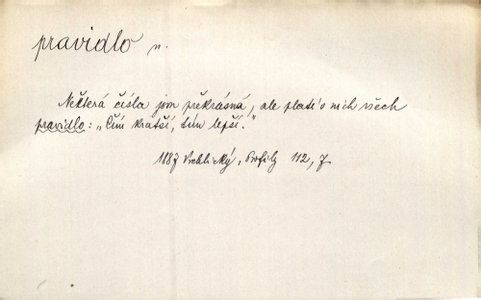 pravidlo n.
Některá čísla jsou překrásná, ale platí o nich všech
pravidlo: „Čím kratší, tím lepší."
1887 Vrchlický, Profily 112, 7